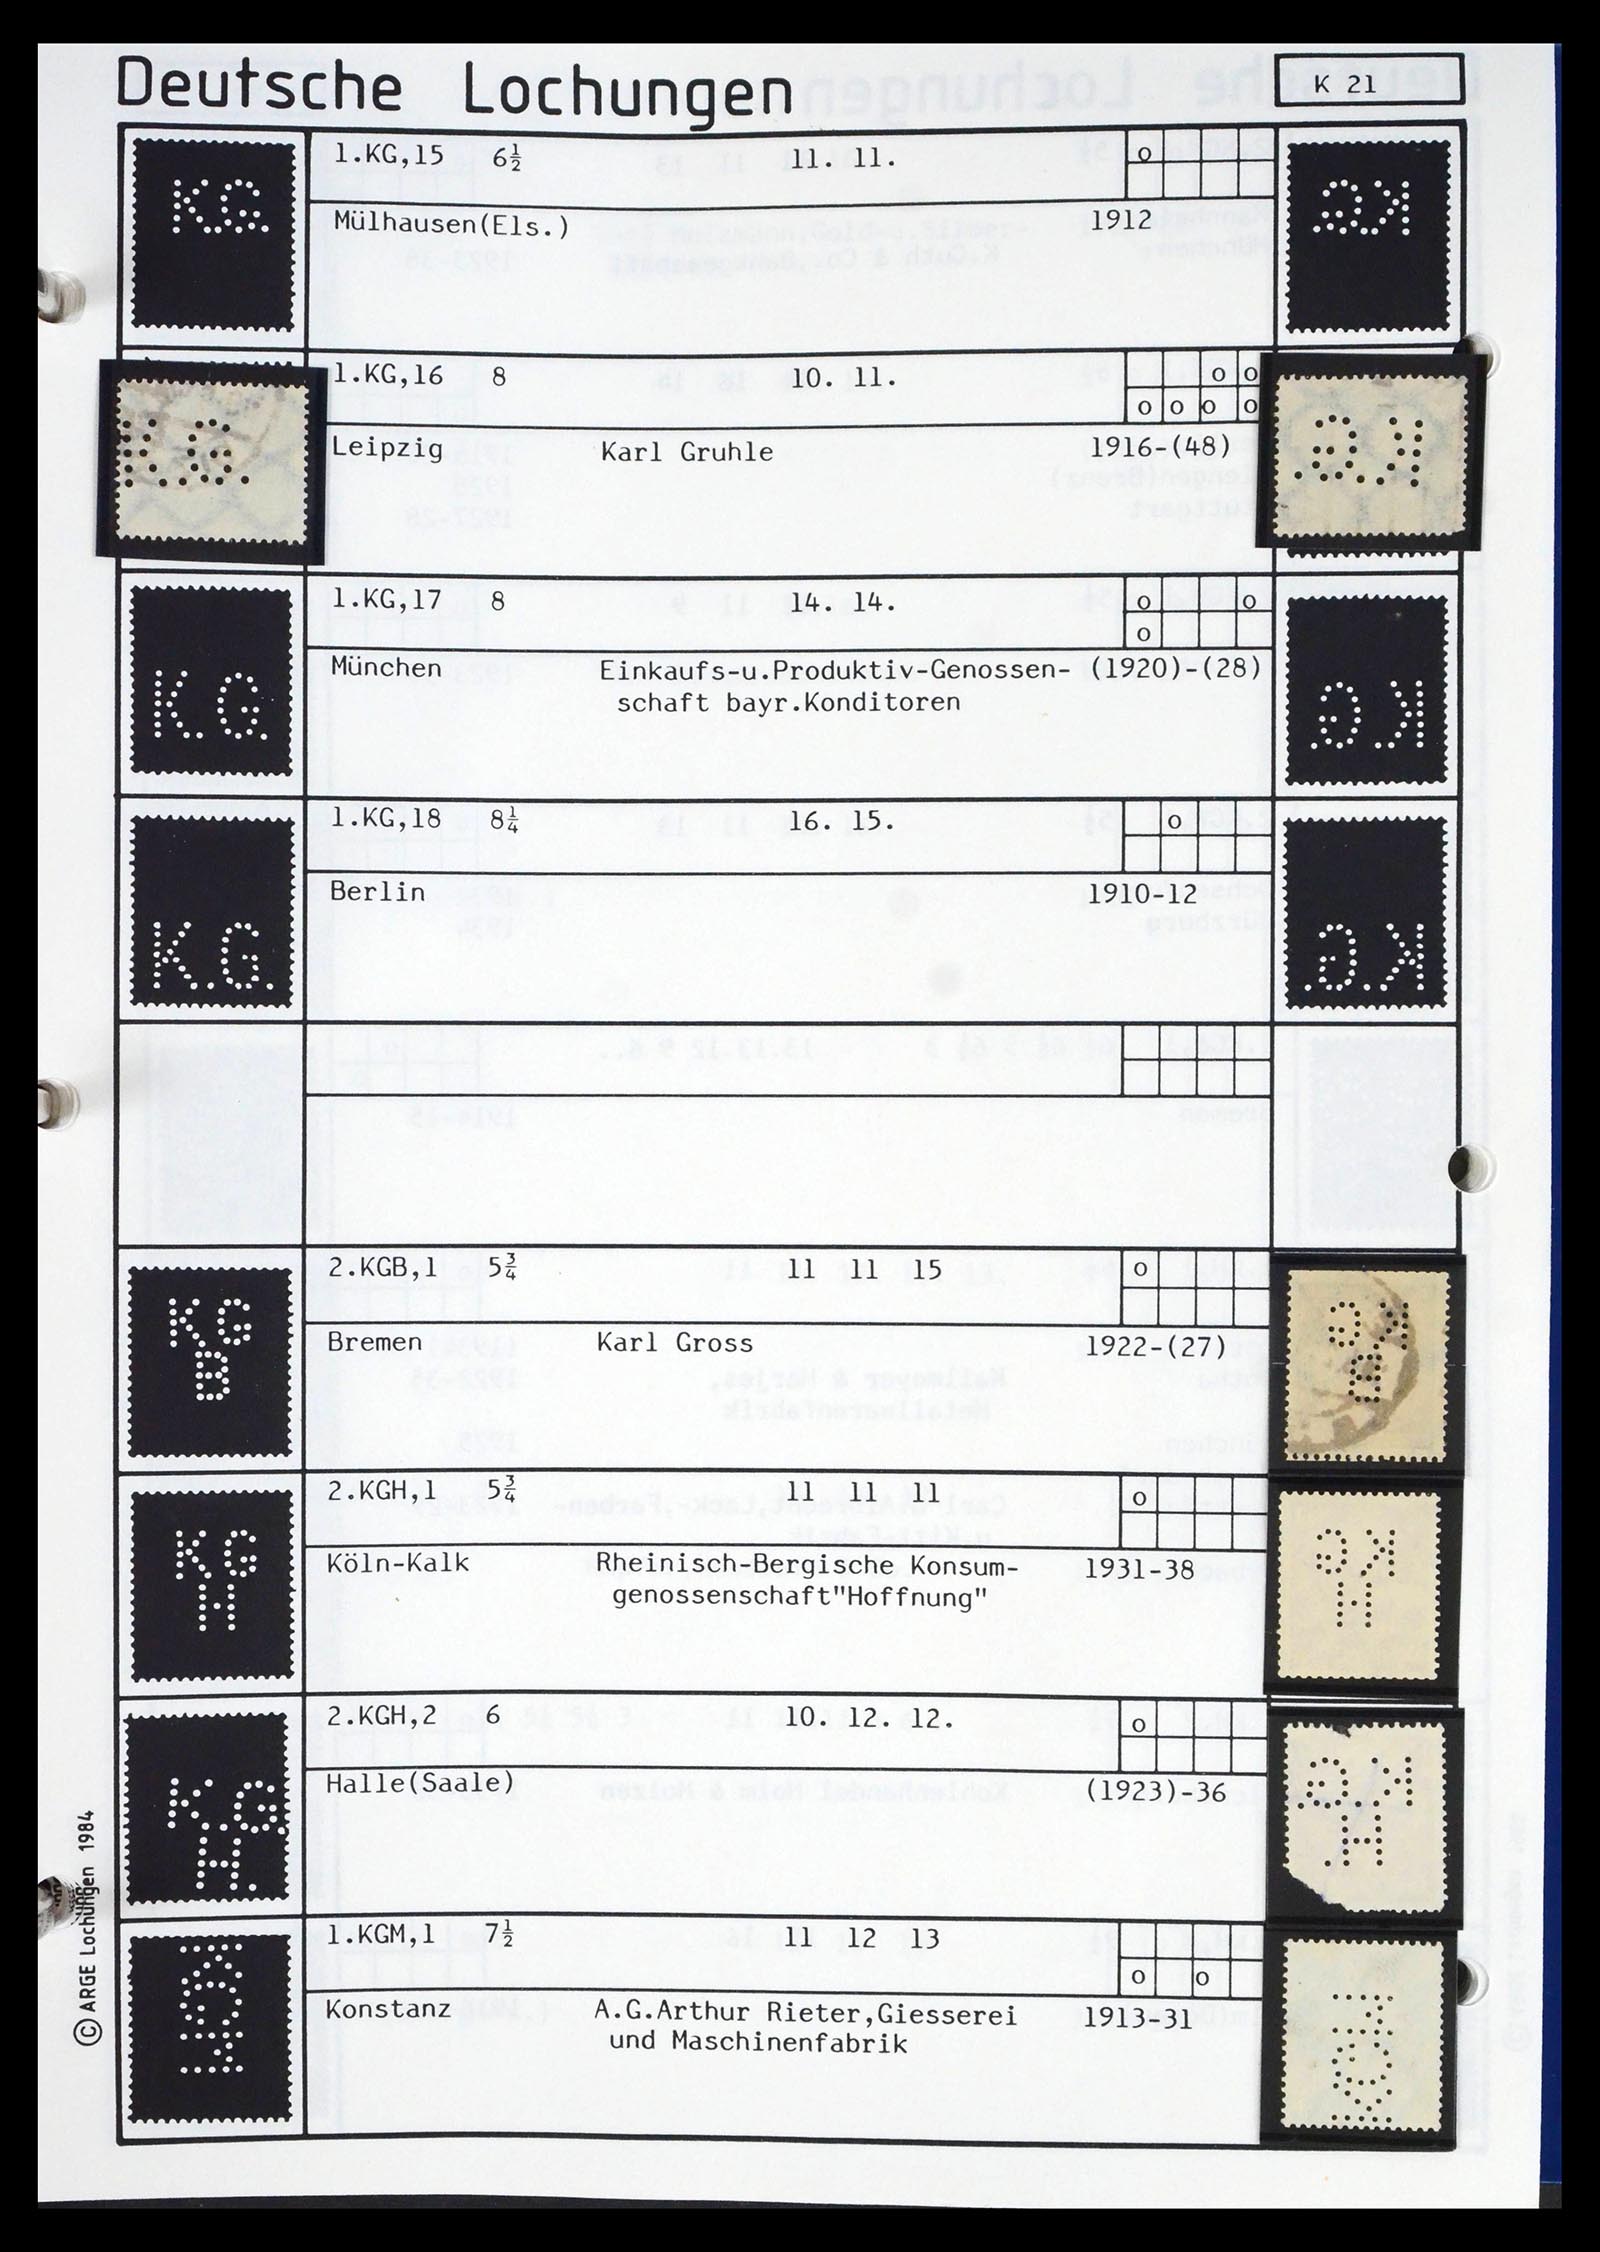 Deutsche Lochungen
K 21
KG.
1.KG,15 6½ 11. 11. o
Mülhausen(Els.) 1912
K.G.
1.KG,16 8 10. 11. o o
o o o o
Leipzig Karl Gruhle 1916-(48)
K.G.
1.KG,17 8 14. 14. o o
o
München Einkaufs-u.Produktiv-Genossen- (1920)-(28)
schaft bayr.Konditoren
K.G.
1.KG,18 8¼ 16. 15. o
Berlin 1910-12
KG
B
2.KGB,1 5¾ 11 11 15 o
Bremen Karl Gross 1922-(27)
KG
H
2.KGH,1 5¾ 11 11 11 o
Köln-Kalk Rheinisch-Bergische Konsum- 1931-38
genossenschaft"Hoffnung"
K.G.
H.
2.KGH,2 6 10. 12. 12. o
Halle(Saale) (1923)-36
KGM
1.KGM,1 7½ 11 12 13
o o
Konstanz A.G.Arthur Rieter,Giesserei 1913-31
und Maschinenfabrik
© ARGE Lochungen 1984